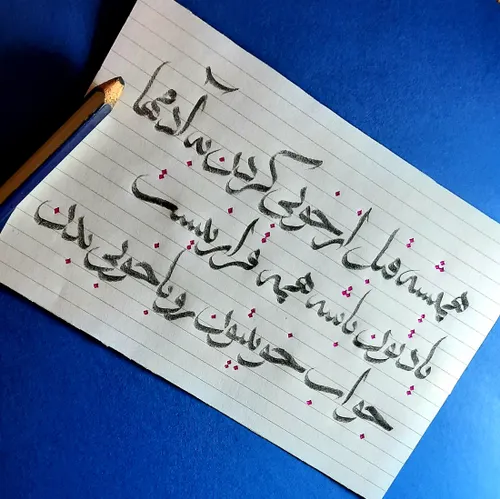 همیشه قبل از خوبی کردن به آدمها
یادتون باشه همه قرار نیست
جواب خوبیتون رو با خوبی بدن